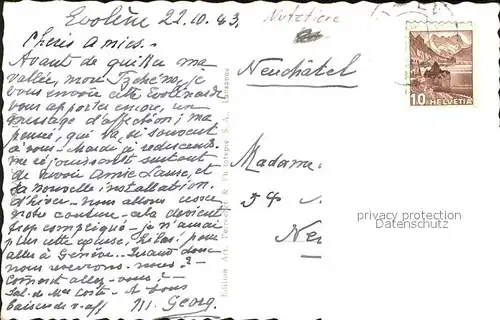 Evolène 22.10.43
Nutztiere
Chers amies.
Avant de quitter ma
vallée, mon je
vous envoie cette Evolénarde
vous apporter encore, un
message d'affection; ma
pensée, qui va si souvent
à vous. Mardi je redescends.
me réjouissant surtout
de revoir Amie Lause, et
la nouvelle installation
d'hiver. nous allons
notre couture. cela devient
trop compliqué. je n'aurai
plus cette excuse, hélas! pour
aller à Genève. Quand donc
nous reverrons-nous?
Comment allez-vous?
Sal. de Mes A vous
baisers de aff
M. Georg.
Edition Art. Perrochet & Phototypie S. A., Lausanne
Neuchâtel
HELVETIA
10
Madame
54
Neu
privacy protection
Datenschutz